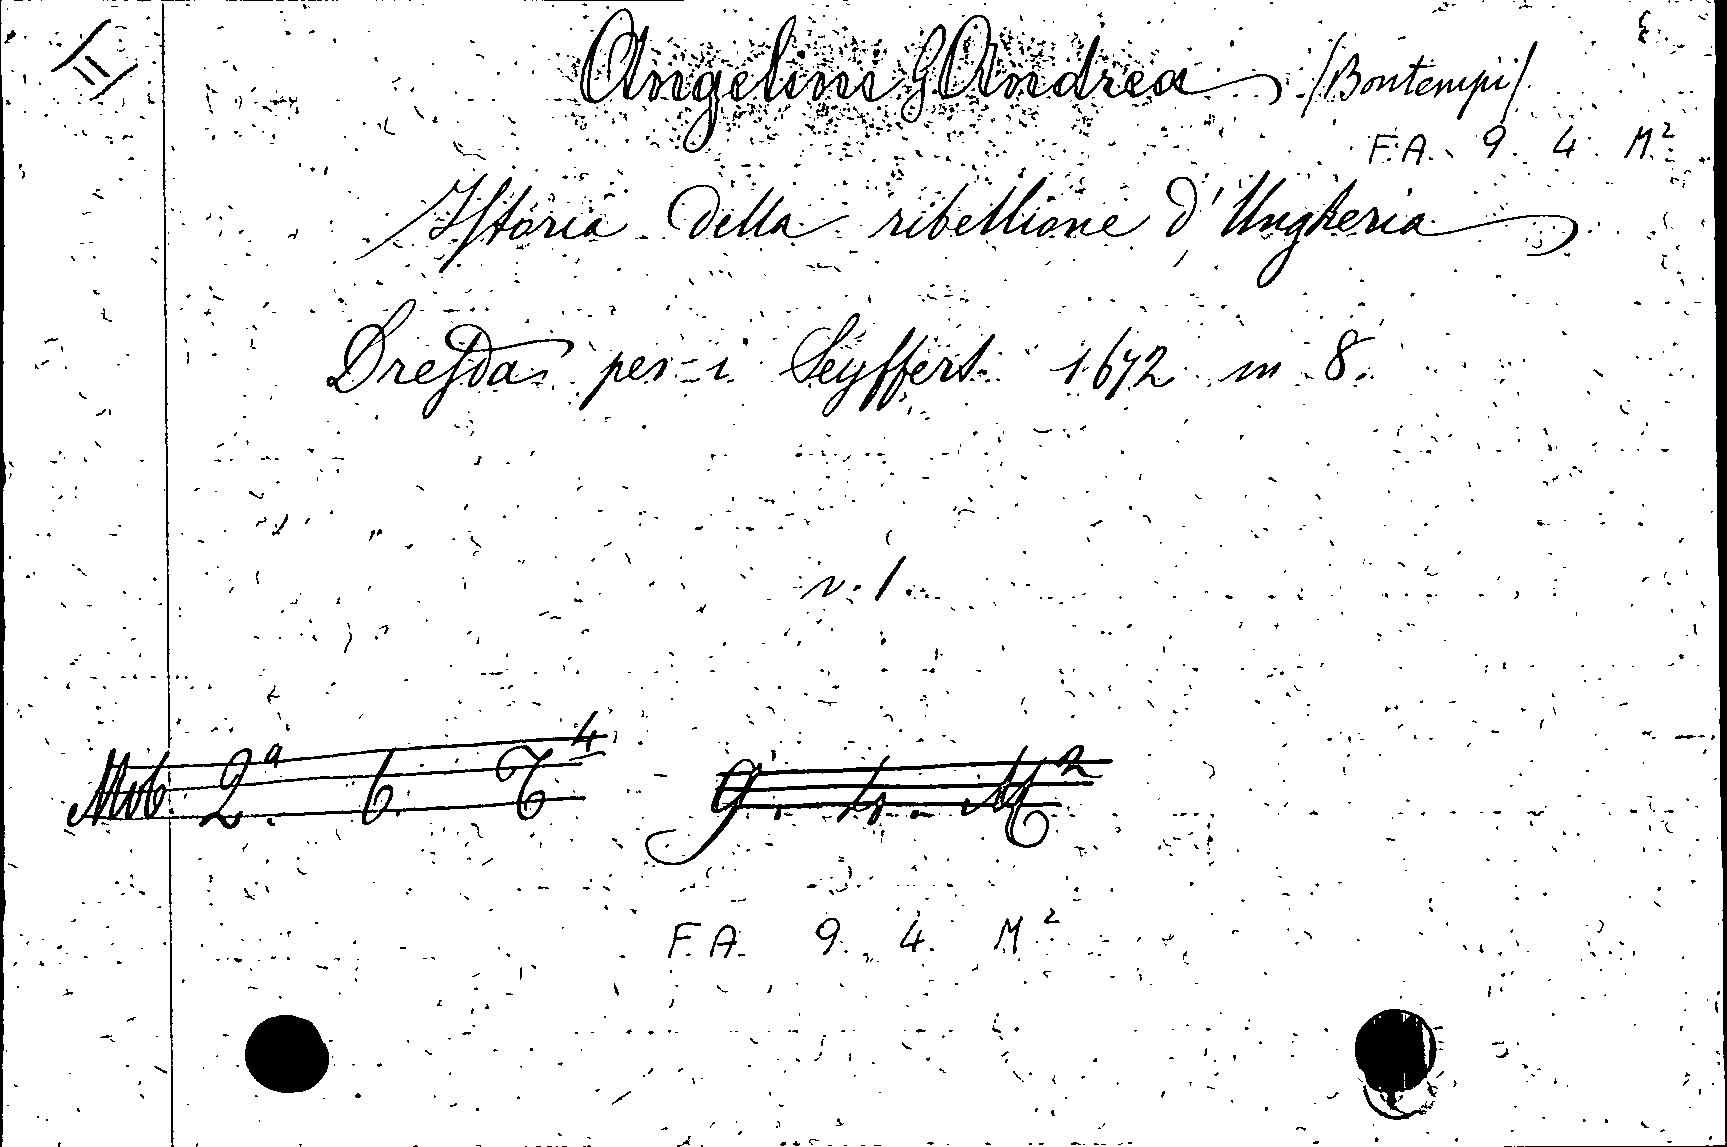 II
Angelini G Andrea /Bontempi/
F.A. 9. 4. M²
Istoria della ribellione d'Ungheria
Dresda per i Seyffert 1672 in 8.
v. 1.
Mob. 2ª. 6. T⁴ 9. 4. M²
F.A. 9. 4. M²